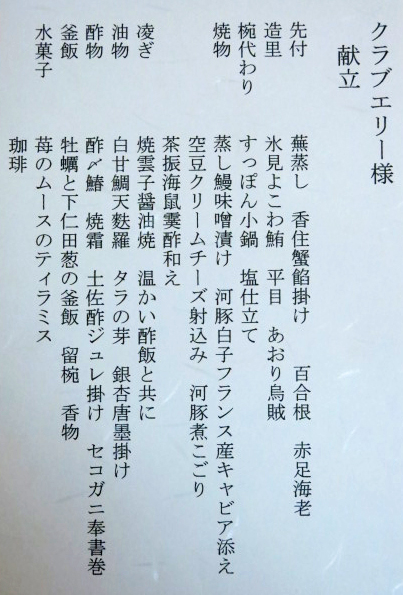 クラブエリー様
献立
先付 蕪蒸し 香住蟹餡掛け 百合根 赤足海老
造里 氷見よこわ鮪 平目 あおり烏賊
椀代わり すっぽん小鍋 塩仕立て
焼物 蒸し鰻味噌漬け 河豚白子フランス産キャビア添え
空豆クリームチーズ射込み 河豚煮こごり
茶振海鼠霙酢和え
凌ぎ 焼雲子醤油焼 温かい酢飯と共に
油物 白甘鯛天麩羅 タラの芽 銀杏唐墨掛け
酢物 酢〆鰆 焼霜 土佐酢ジュレ掛け セコガニ奉書巻
釜飯 牡蠣と下仁田葱の釜飯 留椀 香物
水菓子 苺のムースのティラミス
珈琲